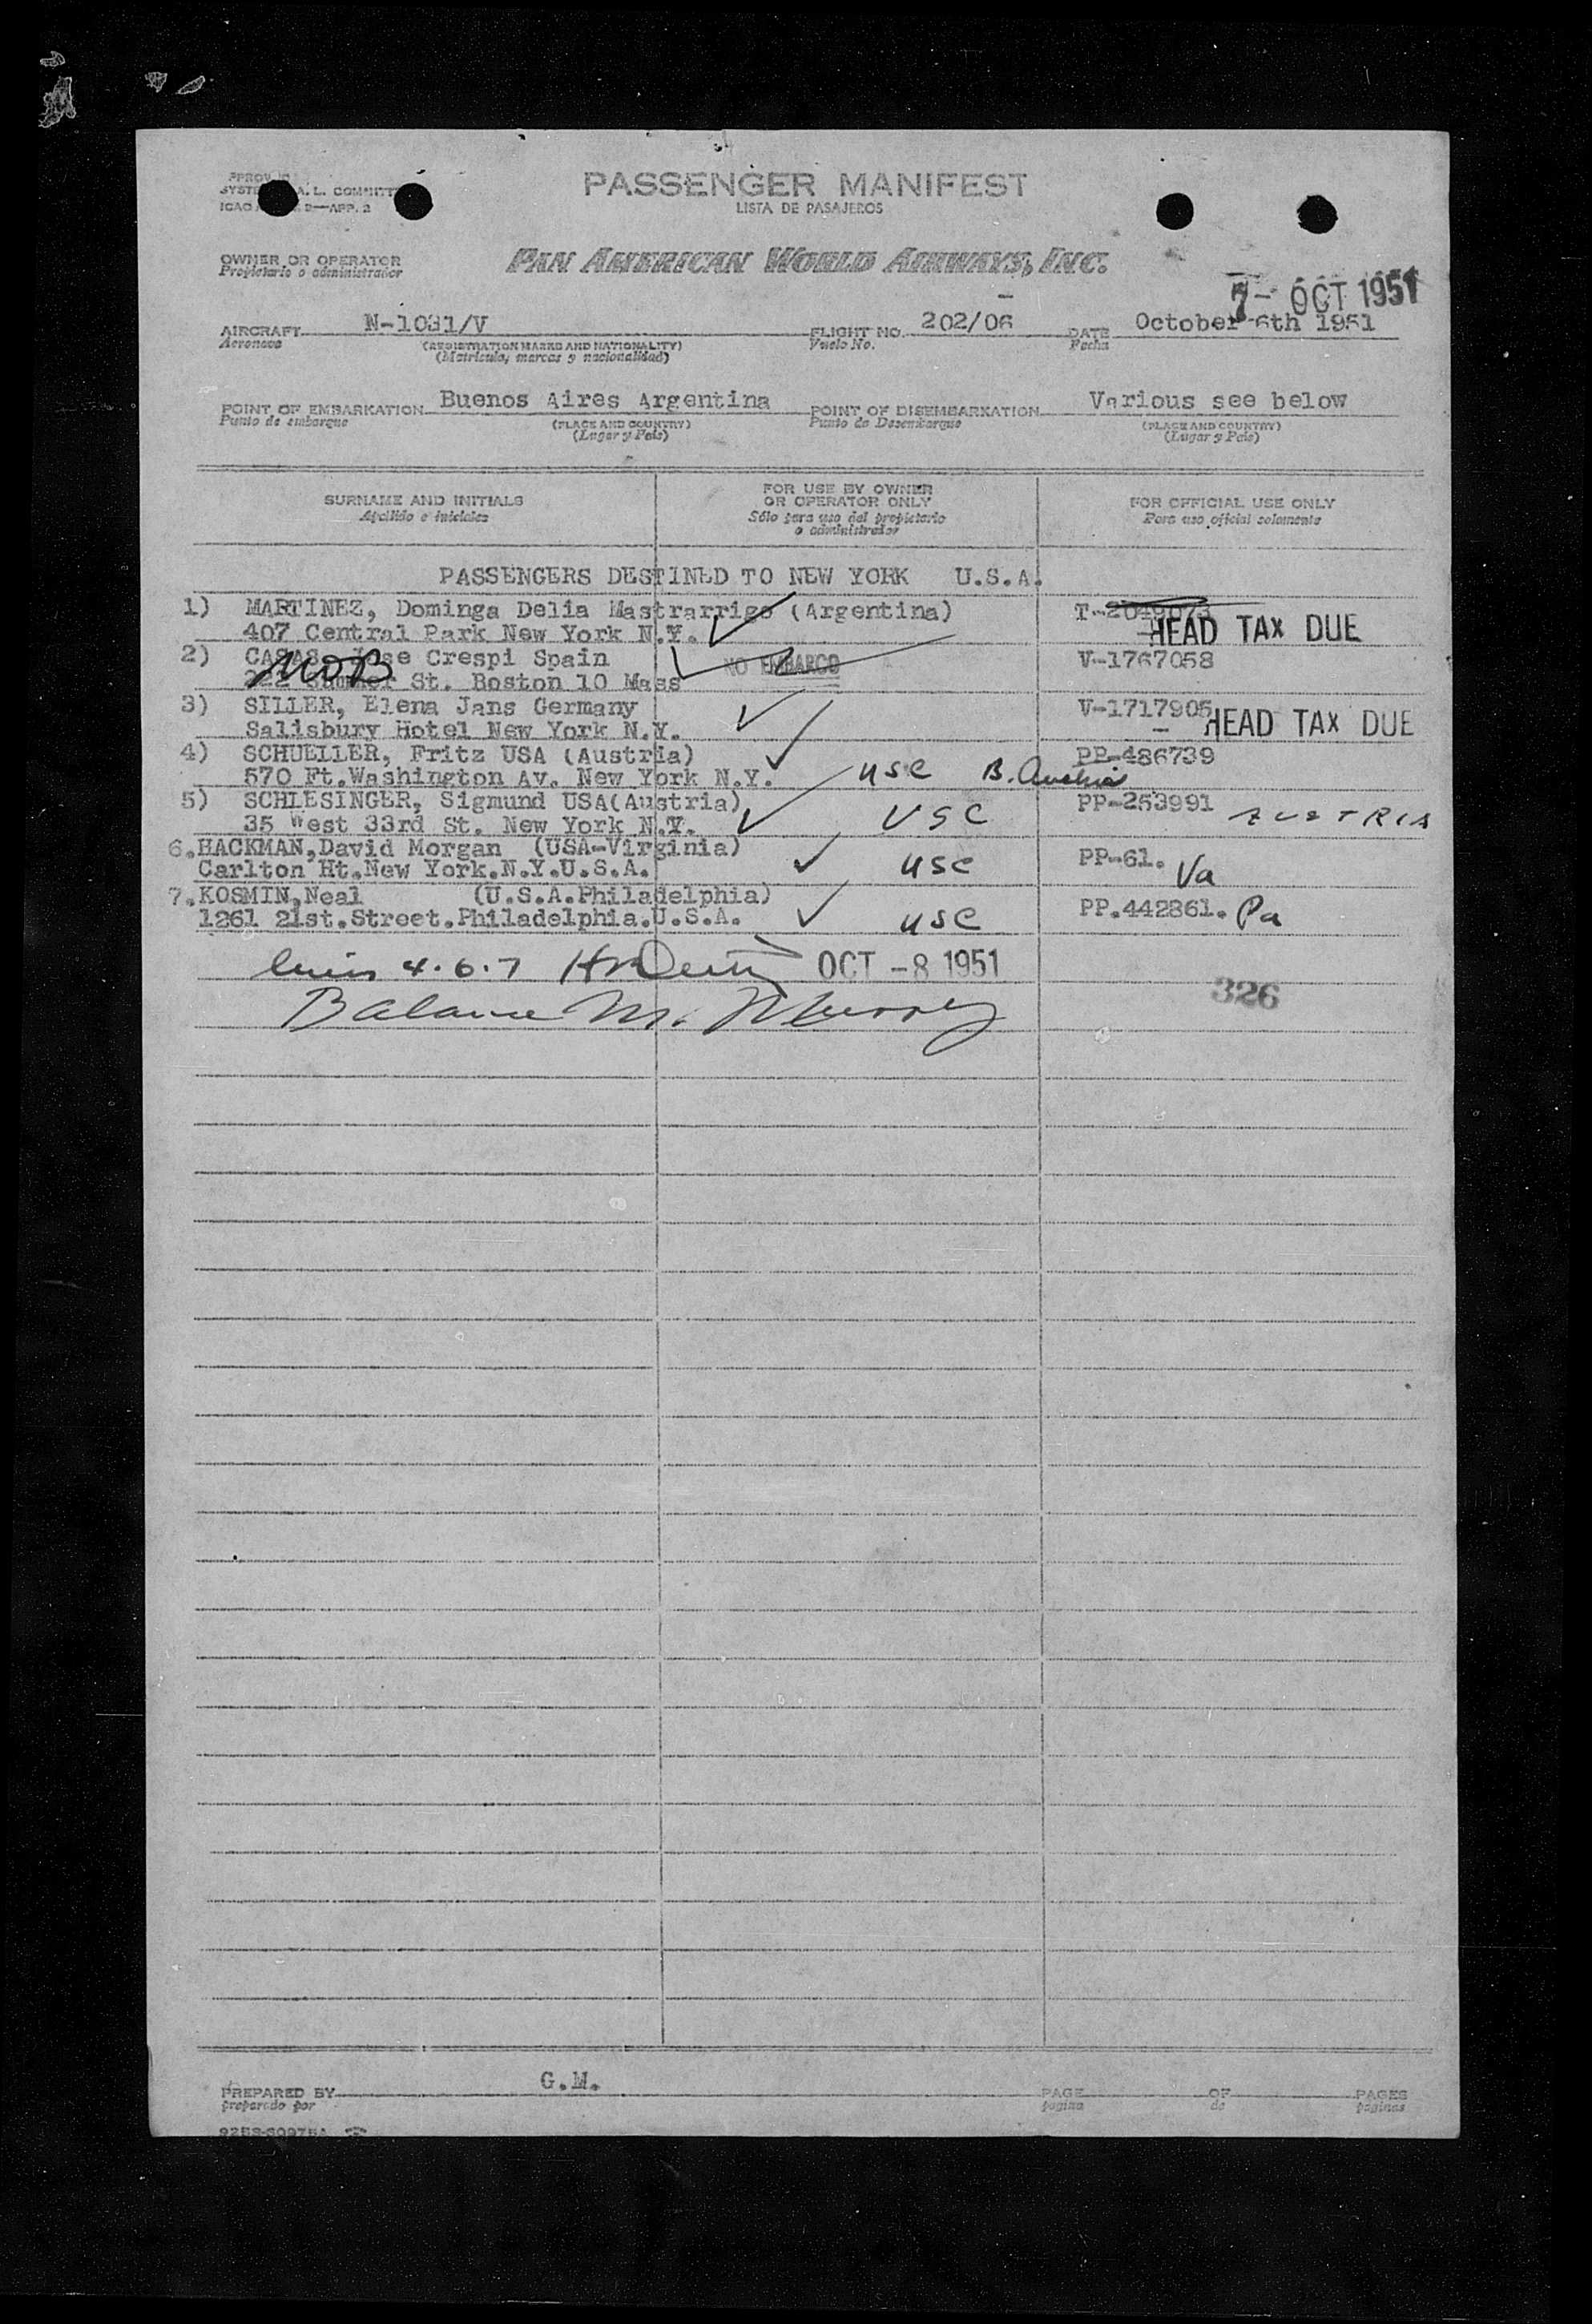 PASSENGER MANIFEST
LISTA DE PASAJEROS
ICAO 9—APP. 2
OWNER OR OPERATOR
Propietario o administrador
PAN AMERICAN WORLD AIRWAYS, INC.
7- OCT 1951
AIRCRAFT N-1031/V FLIGHT NO. 202/06 DATE October 6th 1951
Aeronave (REGISTRATION MARKS AND NATIONALITY) Vuelo No. Fecha
(Matrícula, marcas y nacionalidad)
POINT OF EMBARKATION Buenos Aires Argentina POINT OF DISEMBARKATION Various see below
Punto de embarque (PLACE AND COUNTRY) Punto de Desembarque (PLACE AND COUNTRY)
(Lugar y País) (Lugar y País)
SURNAME AND INITIALS
Apellido e iniciales
FOR USE BY OWNER
OR OPERATOR ONLY
Sólo para uso del propietario
o administrador
FOR OFFICIAL USE ONLY
Para uso oficial solamente
PASSENGERS DESTINED TO NEW YORK U.S.A.
1) MARTINEZ, Dominga Delia Mastrarrigo (Argentina) T-2049073
407 Central Park New York N.Y. HEAD TAX DUE
2) CASAS, Jose Crespi Spain NO EMBARCO V-1767058
222 Summer St. Boston 10 Mass
3) SILLER, Elena Jans Germany V-1717905
Salisbury Hotel New York N.Y. HEAD TAX DUE
4) SCHUELLER, Fritz USA (Austria) PP-486739
570 Ft.Washington Av. New York N.Y. USC B. Austria
5) SCHLESINGER, Sigmund USA(Austria) PP-253991 AUSTRIA
35 West 33rd St. New York N.Y. USC
6.HACKMAN,David Morgan (USA-Virginia) PP-61. Va
Carlton Ht.New York.N.Y.U.S.A. USC
7.KOSMIN,Neal (U.S.A.Philadelphia) PP.442861. Pa
1261 21st.Street.Philadelphia.U.S.A. USC
4.6.7 OCT -8 1951
Balance M. Murray 326
PREPARED BY G.M. PAGE OF PAGES
preparado por página de páginas